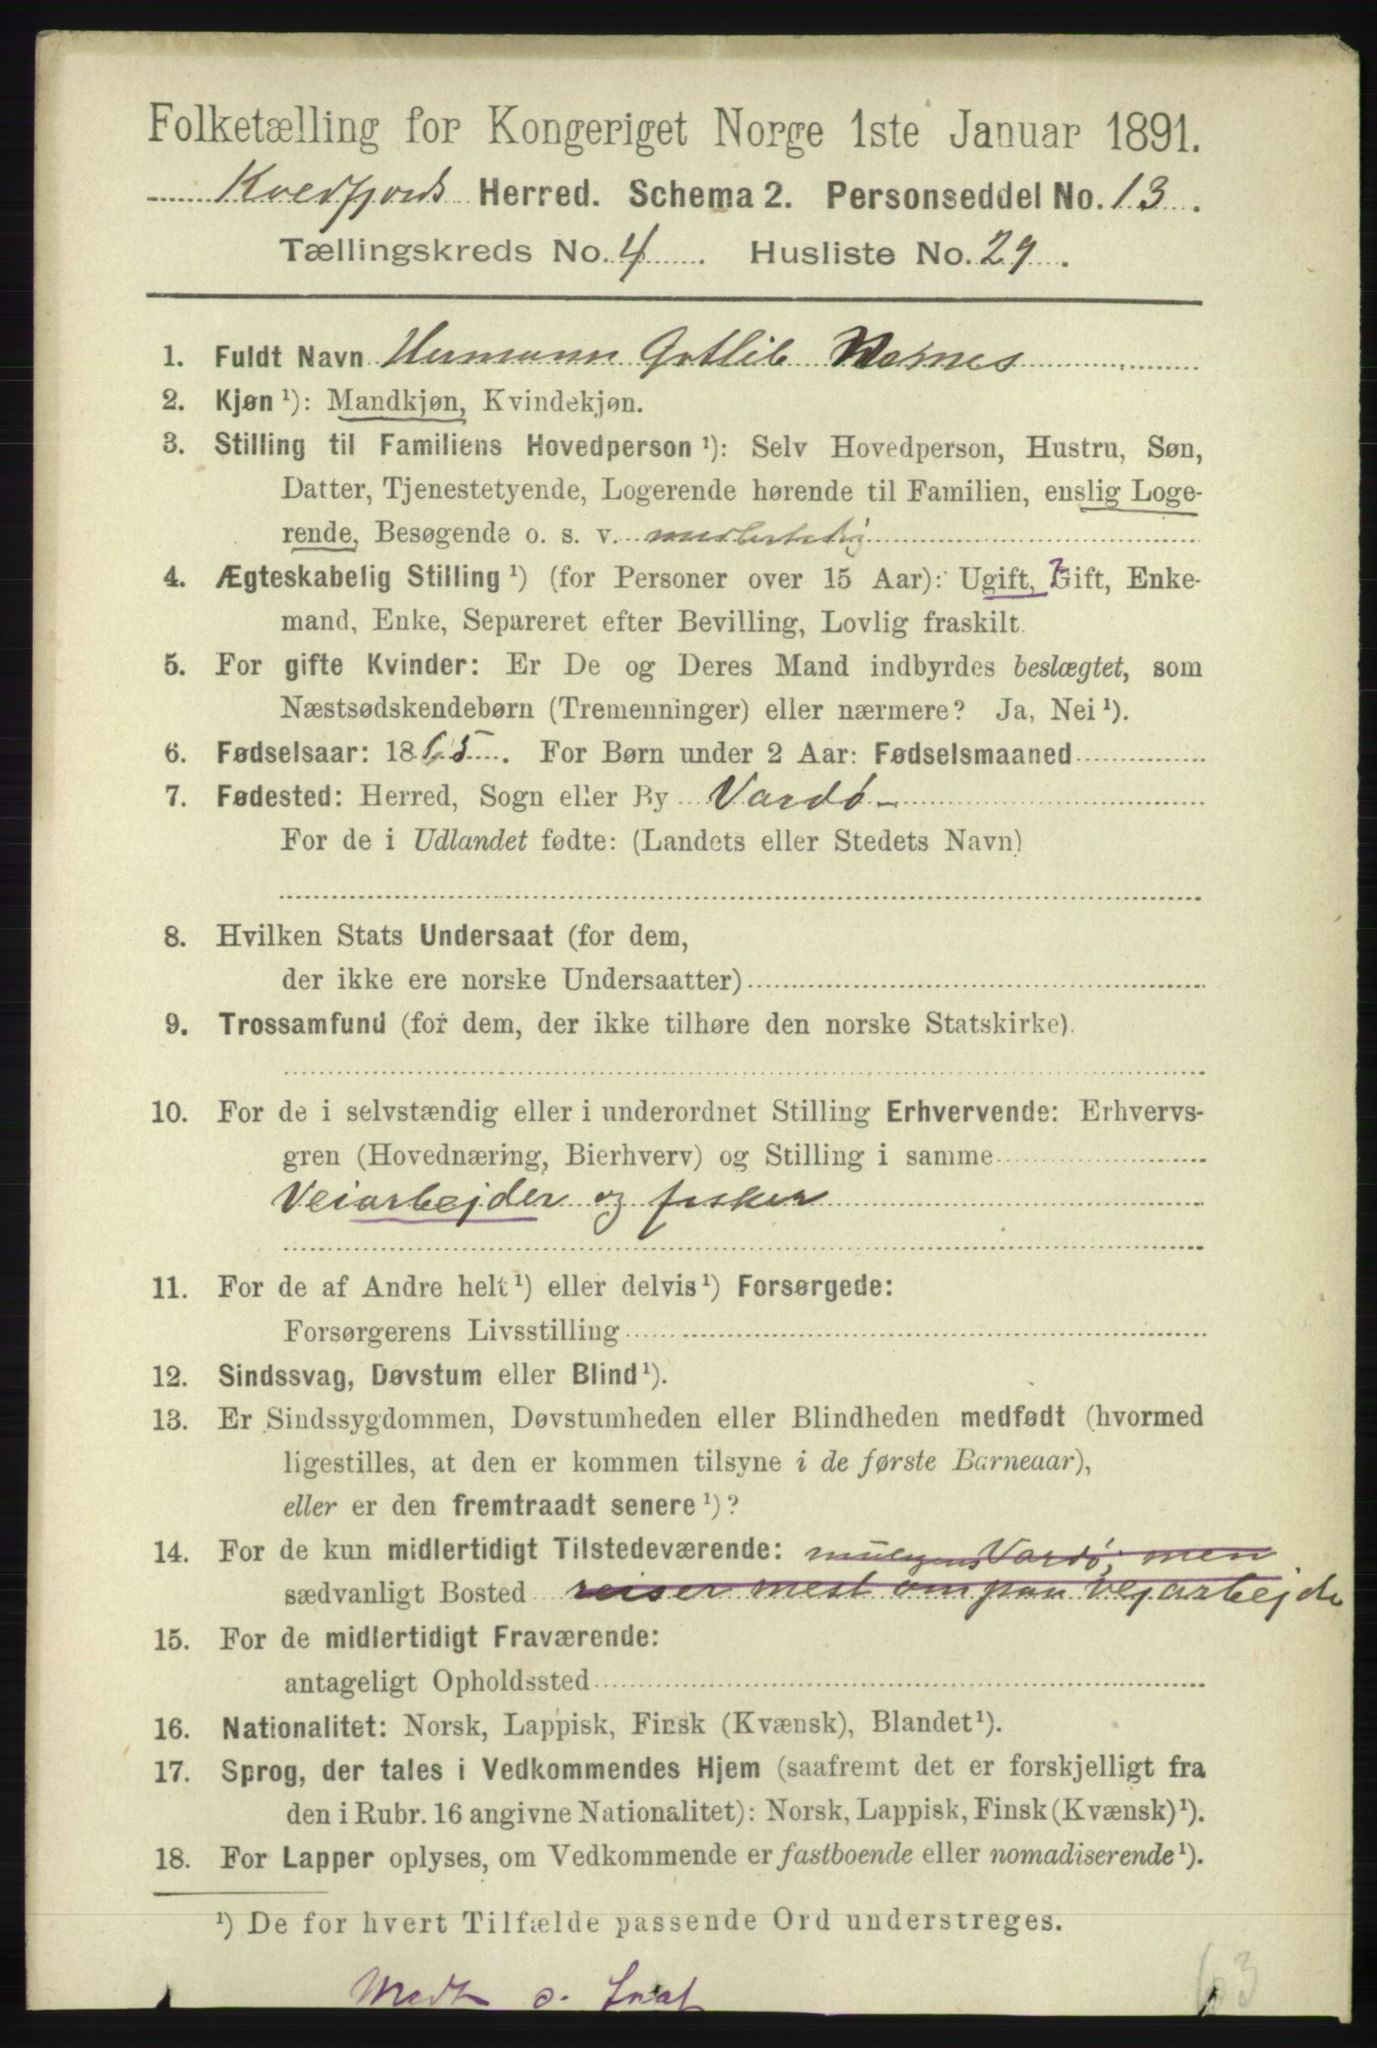 Folketælling for Kongeriget Norge 1ste Januar 1891.
Kvedfjords Herred. Schema 2. Personseddel No. 13.
Tællingskreds No. 4. Husliste No. 29.
1. Fuldt Navn Hermann Gotlib Warnes
2. Kjøn ¹): Mandkjøn, Kvindekjøn.
3. Stilling til Familiens Hovedperson ¹): Selv Hovedperson, Hustru, Søn,
Datter, Tjenestetyende, Logerende hørende til Familien, enslig Loge-
rende, Besøgende o. s. v. midlertidig
4. Ægteskabelig Stilling ¹) (for Personer over 15 Aar): Ugift, Gift, Enke-
mand, Enke, Separeret efter Bevilling, Lovlig fraskilt.
5. For gifte Kvinder: Er De og Deres Mand indbyrdes beslægtet, som
Næstsødskendebørn (Tremenninger) eller nærmere? Ja, Nei ¹).
6. Fødselsaar: 1865. For Børn under 2 Aar: Fødselsmaaned
7. Fødested: Herred, Sogn eller By Vardø
For de i Udlandet fødte: (Landets eller Stedets Navn)
8. Hvilken Stats Undersaat (for dem,
der ikke ere norske Undersaatter)
9. Trossamfund (for dem, der ikke tilhøre den norske Statskirke).
10. For de i selvstændig eller i underordnet Stilling Erhvervende: Erhvervs-
gren (Hovednæring, Bierhverv) og Stilling i samme
Veiarbejder og fisker
11. For de af Andre helt ¹) eller delvis ¹) Forsørgede:
Forsørgerens Livsstilling
12. Sindssvag, Døvstum eller Blind ¹).
13. Er Sindssygdommen, Døvstumheden eller Blindheden medfødt (hvormed
ligestilles, at den er kommen tilsyne i de første Barneaar),
eller er den fremtraadt senere ¹)?
14. For de kun midlertidigt Tilstedeværende: Vardø, men
sædvanligt Bosted reiser mest om paa vejarbejde
15. For de midlertidigt Fraværende:
antageligt Opholdssted
16. Nationalitet: Norsk, Lappisk, Finsk (Kvænsk), Blandet ¹).
17. Sprog, der tales i Vedkommendes Hjem (saafremt det er forskjelligt fra
den i Rubr. 16 angivne Nationalitet): Norsk, Lappisk, Finsk (Kvænsk) ¹).
18. For Lapper oplyses, om Vedkommende er fastboende eller nomadiserende ¹).
¹) De for hvert Tilfælde passende Ord understreges.
63